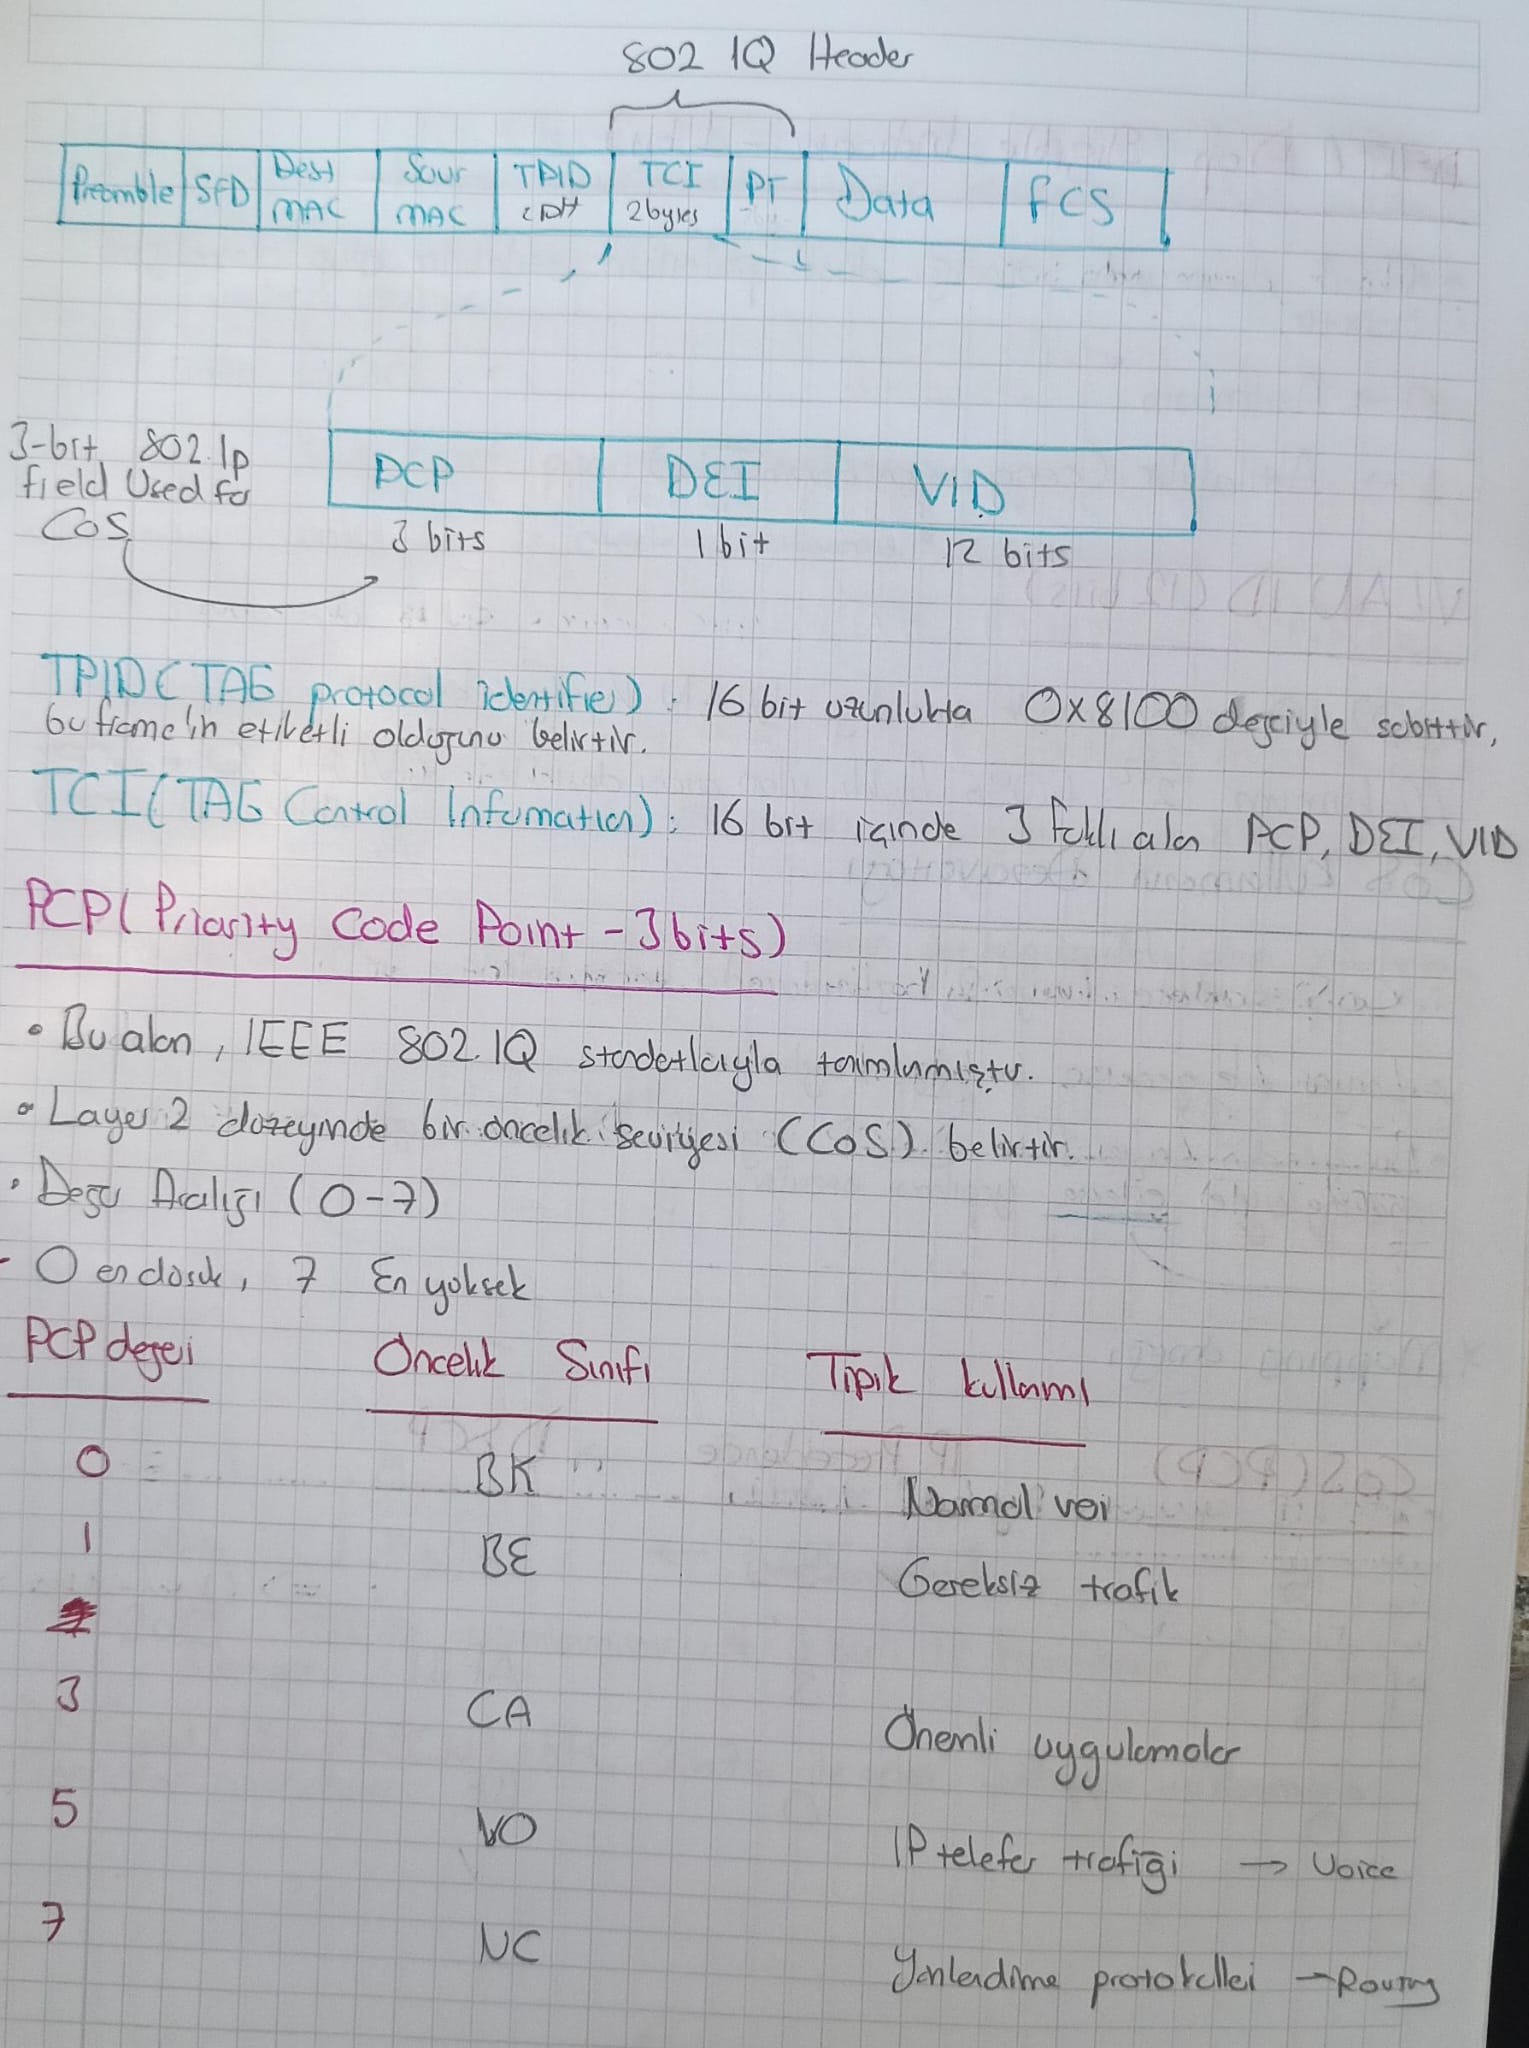 802 1Q Header
Preamble SFD Dest MAC Sour MAC TPID TCI 2byes PT Data FCS
3-bit 802.1p
field Used for
CoS
PCP DEI VID
3 bits 1 bit 12 bits
TPID (TAG protocol identifier) : 16 bit uzunlukta 0x8100 değeriyle sabittir,
bu frame'in etiketli olduğunu belirtir.
TCI (TAG Control Information) : 16 bit içinde 3 farklı alan PCP, DEI, VID
PCP (Priority Code Point - 3bits)
• Bu alan, IEEE 802.1Q standartlarıyla tanımlamıştır.
• Layer 2 düzeyinde bir öncelik seviyesi (CoS) belirtir.
• Değer Aralığı (0-7)
- 0 en düşük, 7 En yüksek
PCP değeri Öncelik Sınıfı Tipik kullanımı
0 BK Normal veri
1 BE Gereksiz trafik
3 CA Önemli uygulamalar
5 VO IP telefon trafiği → Voice
7 NC Yönlendirme protokolleri → Routing